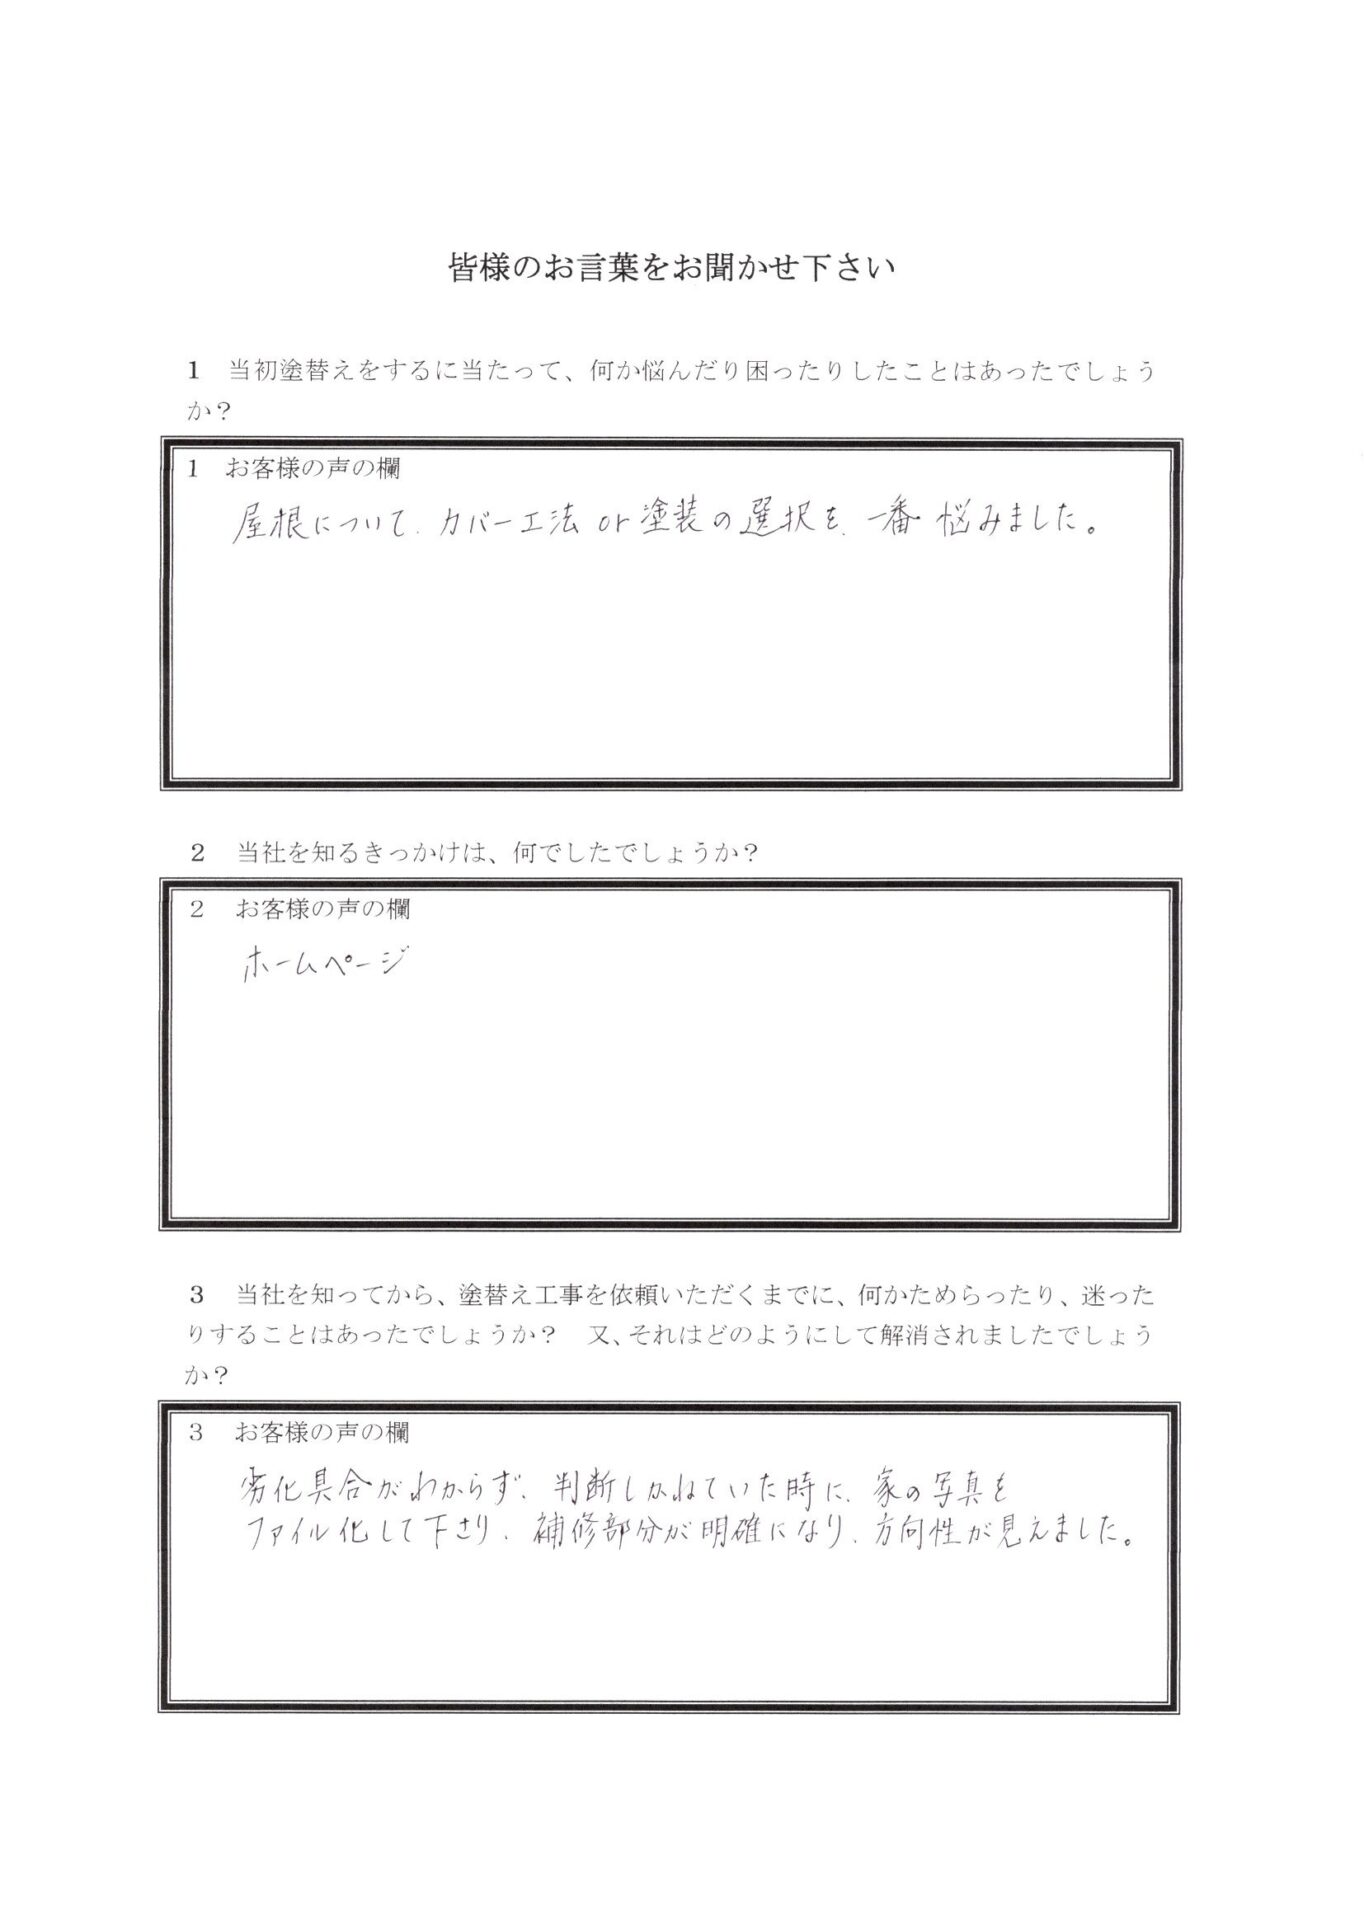 皆様のお言葉をお聞かせ下さい
1　当初塗替えをするに当たって、何か悩んだり困ったりしたことはあったでしょう
か？
1　お客様の声の欄
屋根について、カバー工法 or 塗装の選択を、一番 悩みました。
2　当社を知るきっかけは、何でしたでしょうか？
2　お客様の声の欄
ホームページ
3　当社を知ってから、塗替え工事を依頼いただくまでに、何かためらったり、迷った
りすることはあったでしょうか？　又、それはどのようにして解消されましたでしょう
か？
3　お客様の声の欄
劣化具合がわからず、判断しかねていた時に、家の写真を
ファイル化して下さり、補修部分が明確になり、方向性が見えました。